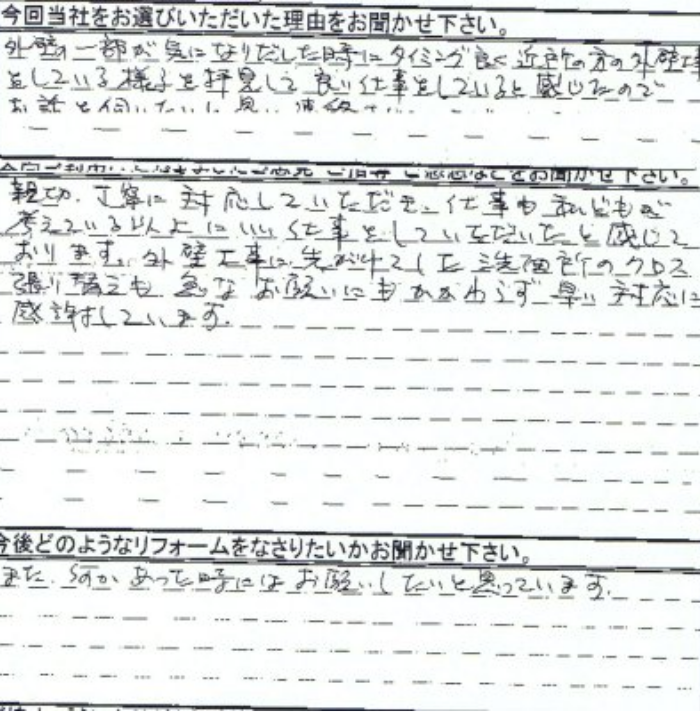 今回当社をお選びいただいた理由をお聞かせ下さい。
外壁の一部が気になりだした時にタイミング良く近所の方の外壁工事
をしている様子を拝見して良い仕事をしていると感じたので
お話を伺いたいと思い
をお聞かせ下さい。
親切、丁寧に対応していただき、仕事も私どもが
考えている以上にいい仕事をしていただいたと感じて
おります。外壁工事に先がけてした洗面所のクロス
張り替えも急なお願いにもかかわらず早い対応に
感謝しています。
今後どのようなリフォームをなさりたいかお聞かせ下さい。
また、何かあった時にはお願いしたいと思っています。